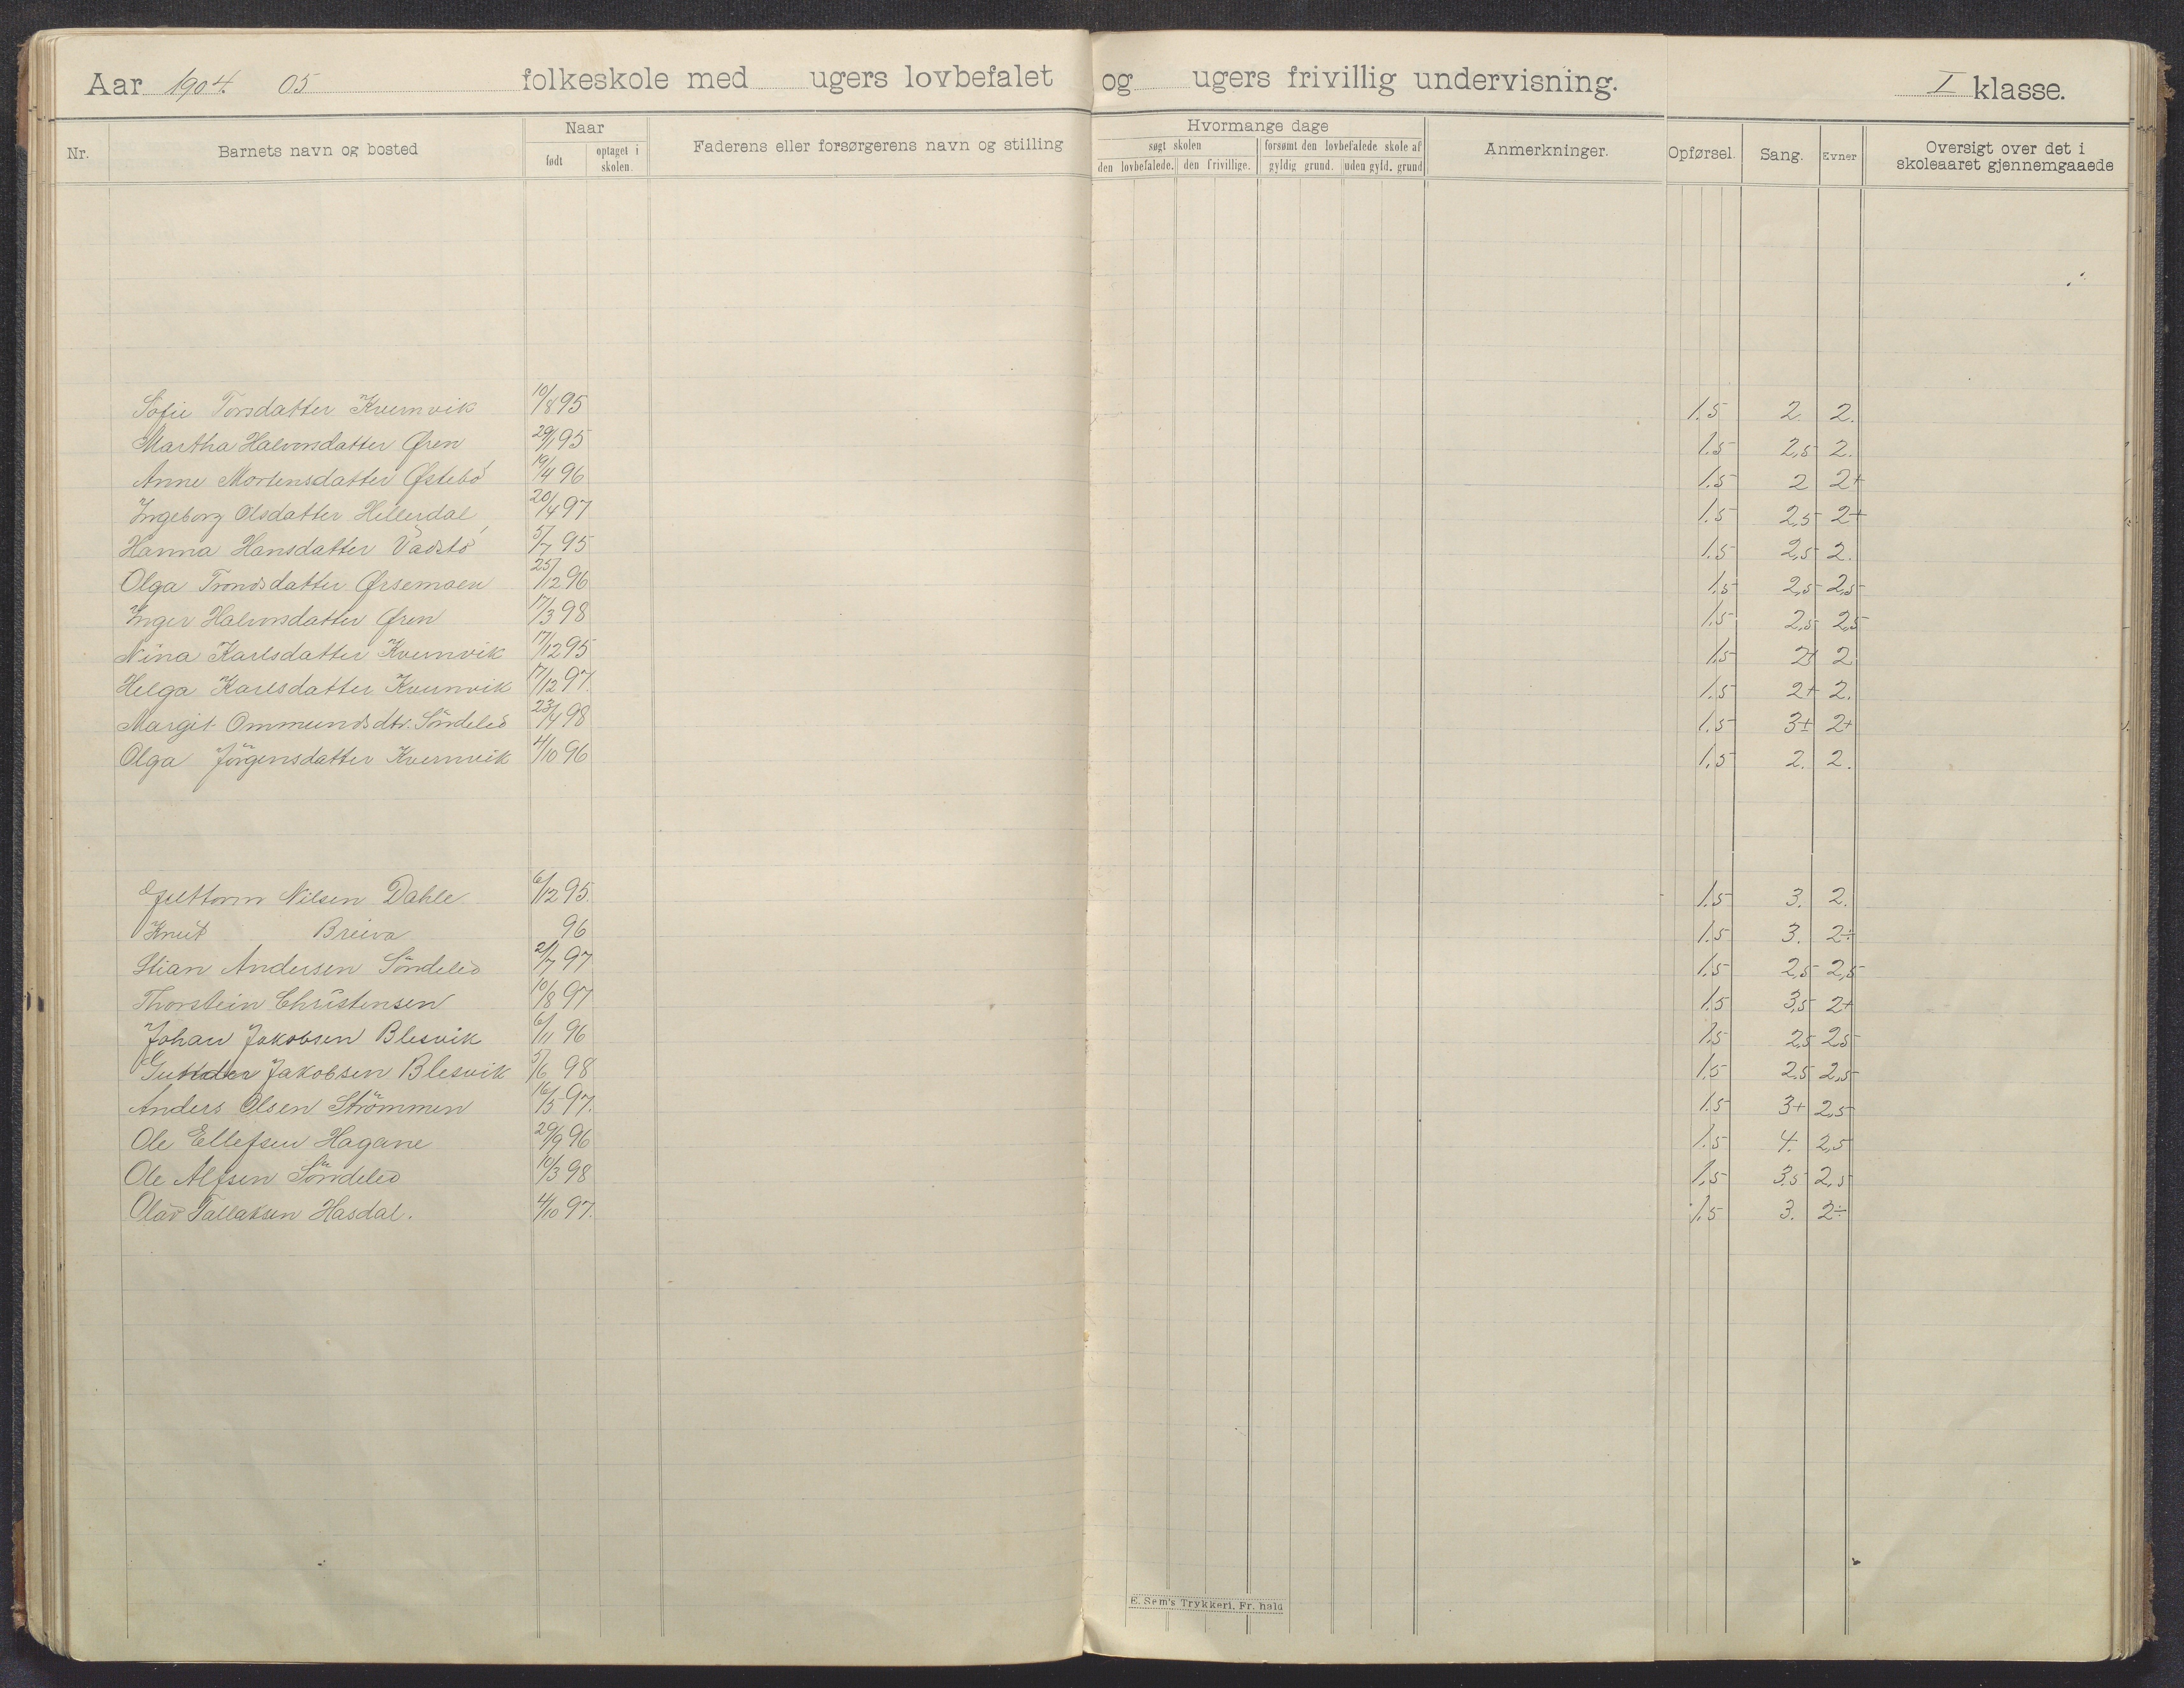 Aar 1904. 05 folkeskole med ugers lovbefalet og ugers frivillig undervisning. I klasse.
Nr. Barnets navn og bosted Naar født optaget i skolen. Faderens eller forsørgerens navn og stilling Hvormange dage søgt skolen den lovbefalede. den frivillige. forsømt den lovbefalede skole af gyldig grund. uden gyld. grund Anmerkninger. Opførsel. Sang. Evner Oversigt over det i skoleaaret gjennemgaaede
Sofie Torsdatter Kvernvik 10/8 95 1.5 2. 2.
Martha Halvorsdatter Øren 29/1 95 1.5 2,5 2.
Anne Mortensdatter Østebö 19/4 96 1.5 2 2+
Ingeborg Olsdatter Hellerdal 20/4 97 1.5 2,5 2+
Hanna Hansdatter Vadstö 5/7 95 1.5 2,5 2.
Olga Trondsdatter Ørsemoen 25/12 96 1.5 2,5 2,5
Inger Halvorsdatter Øren 17/3 98 1.5 2,5 2,5
Nina Karlsdatter Kvernvik 17/12 95 1.5 2+ 2
Helga Karlsdatter Kvernvik 17/12 97. 1.5 2+ 2.
Margit Ommundsdtr. Söndeled 23/4 98 1.5 3+ 2+
Olga Jörgensdatter Kvernvik 4/10 96 1.5 2. 2.
Guttorm Nilsen Dahle 6/12 95. 1.5 3. 2.
Knut Breiva 96 1.5 3. 2÷
Stian Andersen Söndeled 21/7 97 1.5 2,5 2,5
Thorstein Christensen 10/8 97 1.5 3,5 2+
Johan Jakobsen Blesvik 6/11 96 1.5 2,5 2,5
Gunder Jakobsen Blesvik 5/6 98 1.5 2,5 2,5
Anders Olsen Strömmen 16/5 97. 1.5 3+ 2,5
Ole Ellefsen Hagane 29/9 96 1.5 4. 2,5
Ole Alfsen Söndeled 10/3 98 1.5 3.5 2,5
Olav Tallaksen Hasdal. 4/10 97. 1.5 3. 2÷
E. Sem's Trykkeri. Fr. hald